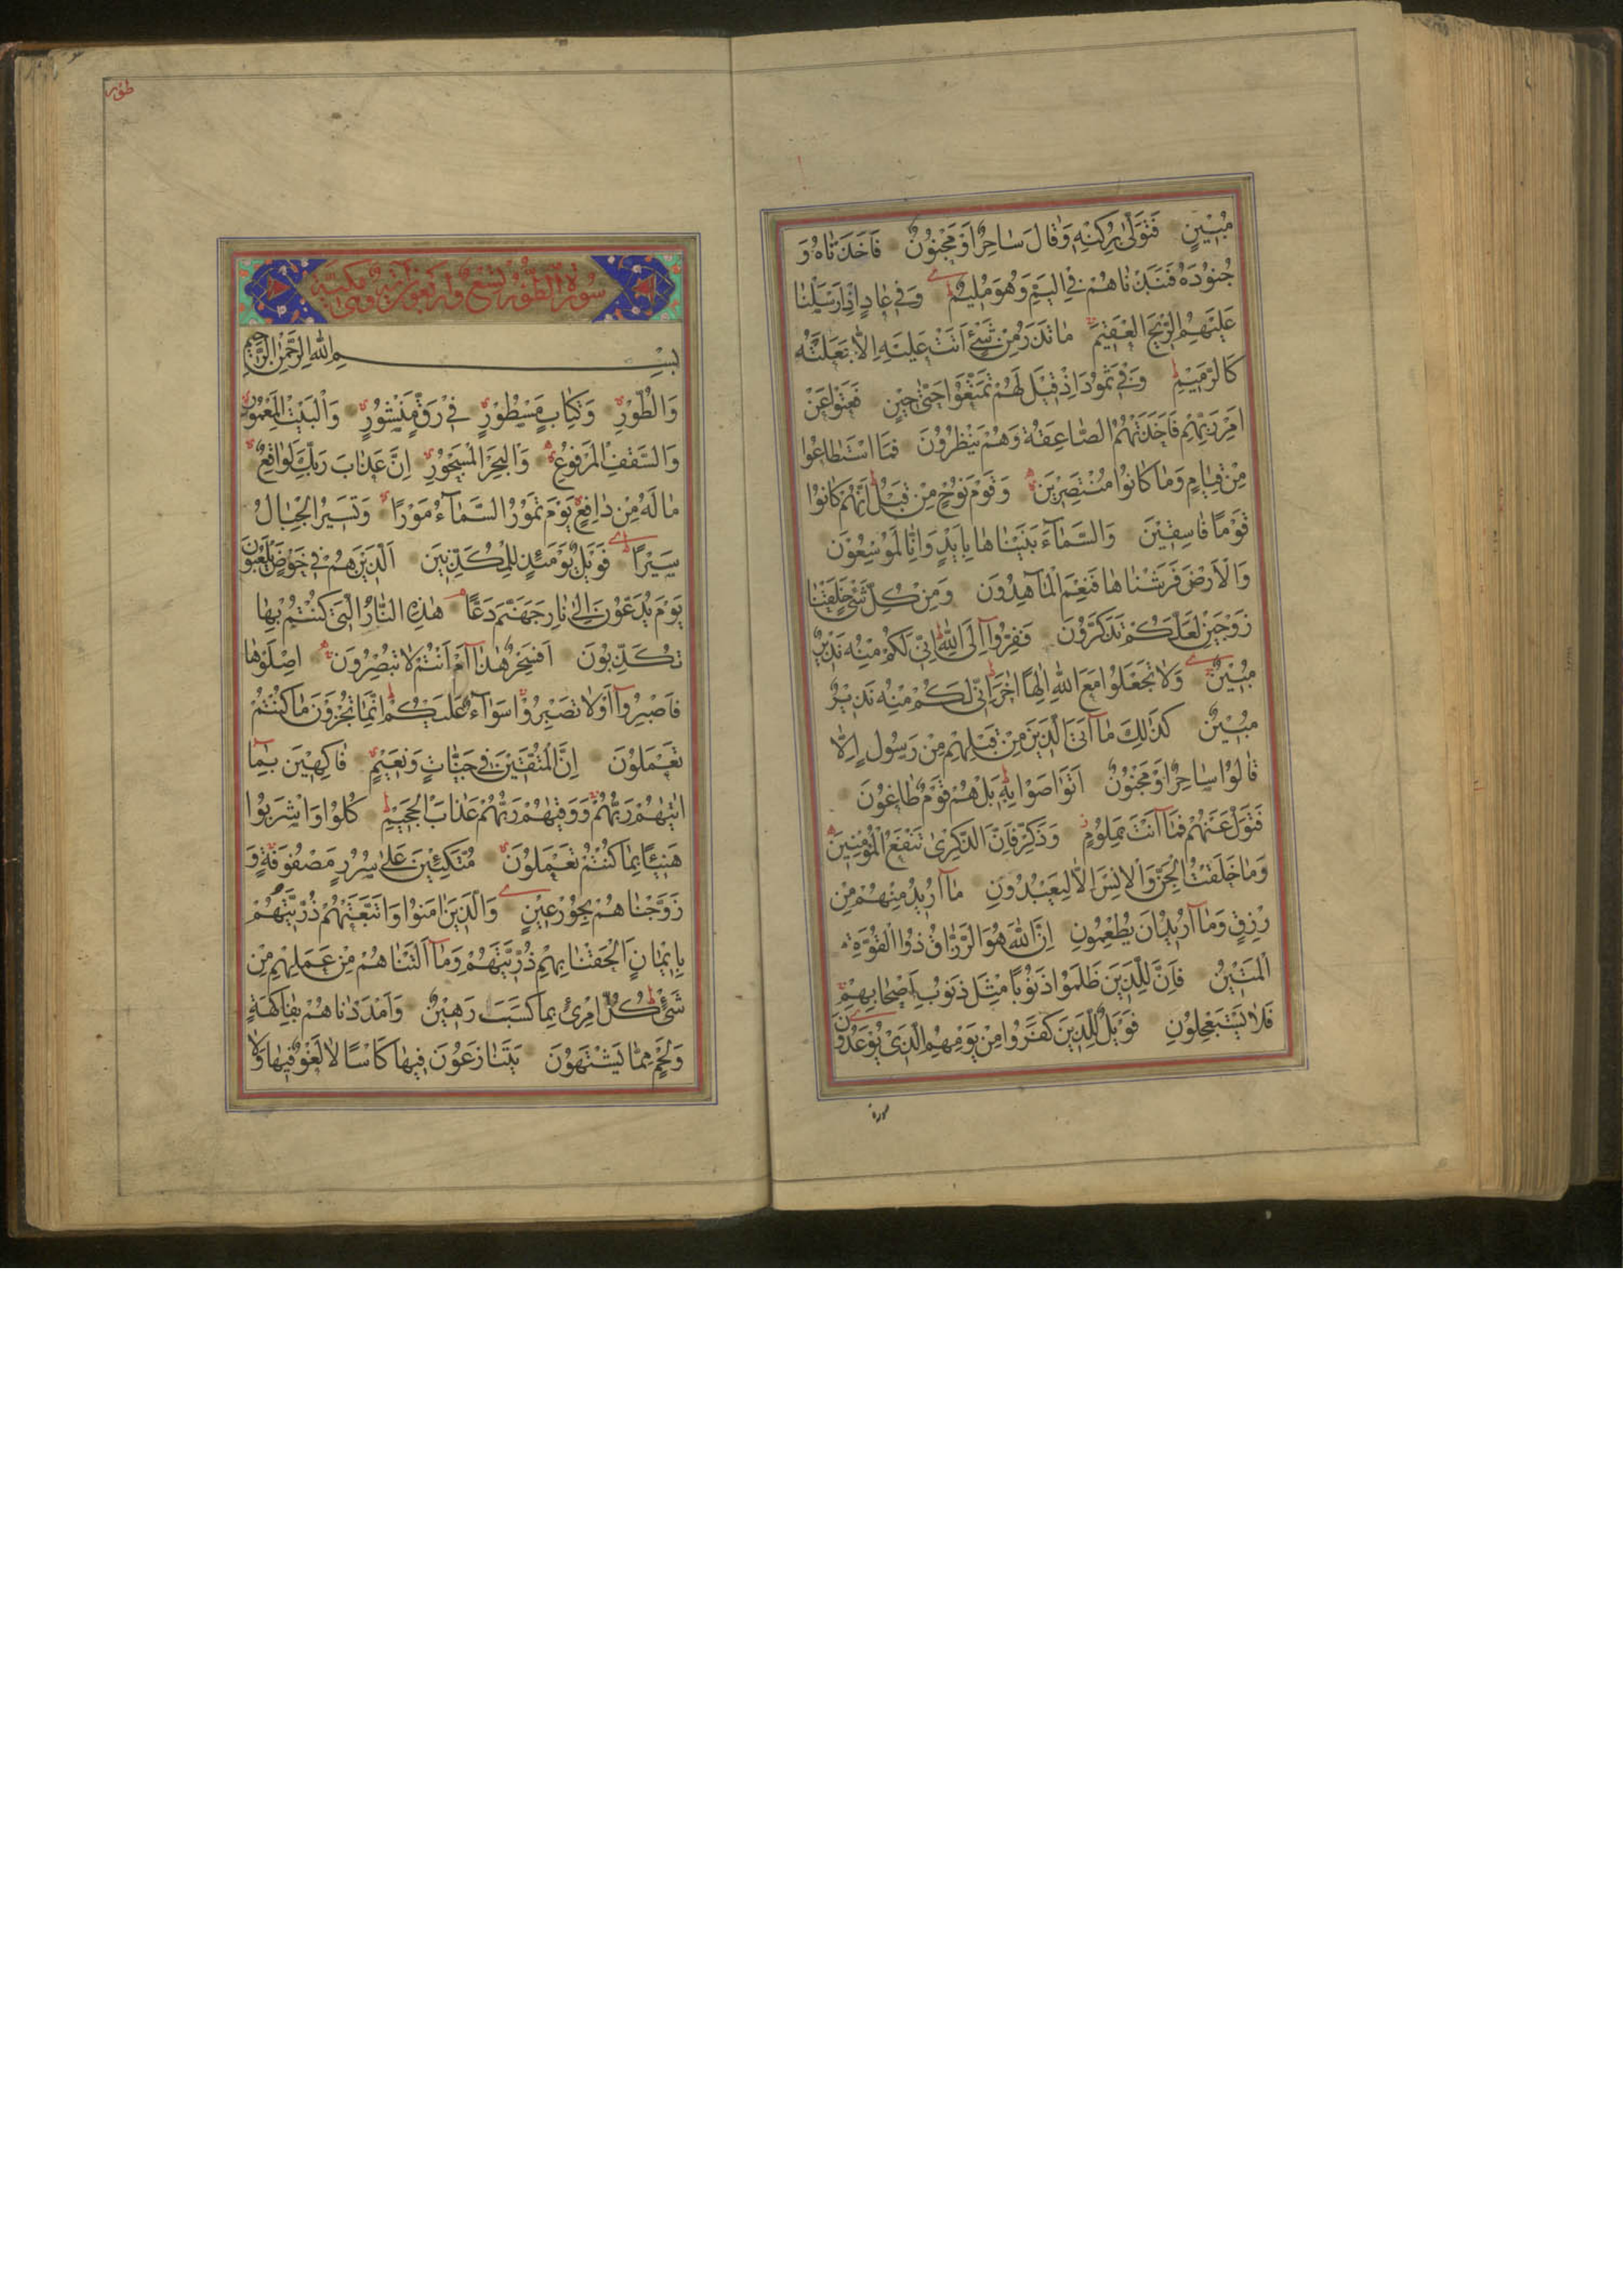 مُبِينٍ فَتَوَلّىٰ بِرُكْنِهِ وَقَالَ سَاحِرٌ اَوْ مَجْنُونٌ فَاَخَذْنَاهُ وَ
جُنُودَهُ فَنَبَذْنَاهُمْ فِي الْيَمِّ وَهُوَ مُلِيمٌ وَفِي عَادٍ اِذْ اَرْسَلْنَا
عَلَيْهِمُ الرِّيحَ الْعَقِيمَ مَا تَذَرُ مِنْ شَيْءٍ اَتَتْ عَلَيْهِ اِلَّا جَعَلَتْهُ
كَالرَّمِيمِ وَفِي ثَمُودَ اِذْ قِيلَ لَهُمْ تَمَتَّعُوا حَتّىٰ حِينٍ فَعَتَوْا عَنْ
اَمْرِ رَبِّهِمْ فَاَخَذَتْهُمُ الصَّاعِقَةُ وَهُمْ يَنْظُرُونَ فَمَا اسْتَطَاعُوا
مِنْ قِيَامٍ وَمَا كَانُوا مُنْتَصِرِينَ وَقَوْمَ نُوحٍ مِنْ قَبْلُ اِنَّهُمْ كَانُوا
قَوْمًا فَاسِقِينَ وَالسَّمَآءَ بَنَيْنَاهَا بِاَيْدٍ وَاِنَّا لَمُوسِعُونَ
وَالْاَرْضَ فَرَشْنَاهَا فَنِعْمَ الْمَاهِدُونَ وَمِنْ كُلِّ شَيْءٍ خَلَقْنَا
زَوْجَيْنِ لَعَلَّكُمْ تَذَكَّرُونَ فَفِرُّوآ اِلَى اللّٰهِ اِنّي لَكُمْ مِنْهُ نَذِيرٌ
مُبِينٌ وَلَا تَجْعَلُوا مَعَ اللّٰهِ اِلٰهًا اٰخَرَ اِنّي لَكُمْ مِنْهُ نَذِيرٌ
مُبِينٌ كَذٰلِكَ مَآ اَتَى الَّذِينَ مِنْ قَبْلِهِمْ مِنْ رَسُولٍ اِلَّا
قَالُوا سَاحِرٌ اَوْ مَجْنُونٌ اَتَوَاصَوْا بِهِ بَلْ هُمْ قَوْمٌ طَاغُونَ
فَتَوَلَّ عَنْهُمْ فَمَآ اَنْتَ بِمَلُومٍ وَذَكِّرْ فَاِنَّ الذِّكْرىٰ تَنْفَعُ الْمُؤْمِنِينَ
وَمَا خَلَقْتُ الْجِنَّ وَالْاِنْسَ اِلَّا لِيَعْبُدُونِ مَآ اُرِيدُ مِنْهُمْ مِنْ
رِزْقٍ وَمَآ اُرِيدُ اَنْ يُطْعِمُونِ اِنَّ اللّٰهَ هُوَ الرَّزَّاقُ ذُو الْقُوَّةِ
الْمَتِينُ فَاِنَّ لِلَّذِينَ ظَلَمُوا ذَنُوبًا مِثْلَ ذَنُوبِ اَصْحَابِهِمْ
فَلَا يَسْتَعْجِلُونِ فَوَيْلٌ لِلَّذِينَ كَفَرُوا مِنْ يَوْمِهِمُ الَّذِي يُوعَدُونَ
سورة
طور
سُورَةُ الطُّورِ تِسْعٌ وَاَرْبَعُونَ اٰيَةً وَهِيَ مَكِّيَّة
بِسْمِ اللّٰهِ الرَّحْمٰنِ الرَّحِيمِ
وَالطُّورِ وَكِتَابٍ مَسْطُورٍ فِي رَقٍّ مَنْشُورٍ وَالْبَيْتِ الْمَعْمُورِ
وَالسَّقْفِ الْمَرْفُوعِ وَالْبَحْرِ الْمَسْجُورِ اِنَّ عَذَابَ رَبِّكَ لَوَاقِعٌ
مَا لَهُ مِنْ دَافِعٍ يَوْمَ تَمُورُ السَّمَآءُ مَوْرًا وَتَسِيرُ الْجِبَالُ
سَيْرًا فَوَيْلٌ يَوْمَئِذٍ لِلْمُكَذِّبِينَ اَلَّذِينَ هُمْ فِي خَوْضٍ يَلْعَبُونَ
يَوْمَ يُدَعُّونَ اِلىٰ نَارِ جَهَنَّمَ دَعًّا هٰذِهِ النَّارُ الَّتِي كُنْتُمْ بِهَا
تُكَذِّبُونَ اَفَسِحْرٌ هٰذَآ اَمْ اَنْتُمْ لَا تُبْصِرُونَ اِصْلَوْهَا
فَاصْبِرُوآ اَوْلَا تَصْبِرُوا سَوَآءٌ عَلَيْكُمْ اِنَّمَا تُجْزَوْنَ مَا كُنْتُمْ
تَعْمَلُونَ اِنَّ الْمُتَّقِينَ فِي جَنَّاتٍ وَنَعِيمٍ فَاكِهِينَ بِمَآ
اٰتٰيهُمْ رَبُّهُمْ وَوَقٰيهُمْ رَبُّهُمْ عَذَابَ الْجَحِيمِ كُلُوا وَاشْرَبُوا
هَنِيئًا بِمَا كُنْتُمْ تَعْمَلُونَ مُتَّكِئِينَ عَلىٰ سُرُرٍ مَصْفُوفَةٍ وَ
زَوَّجْنَاهُمْ بِحُورٍ عِينٍ وَالَّذِينَ اٰمَنُوا وَاتَّبَعَتْهُمْ ذُرِّيَّتُهُمْ
بِاِيمَانٍ اَلْحَقْنَا بِهِمْ ذُرِّيَّتَهُمْ وَمَآ اَلَتْنَاهُمْ مِنْ عَمَلِهِمْ مِنْ
شَيْءٍ كُلُّ امْرِئٍ بِمَا كَسَبَ رَهِينٌ وَاَمْدَدْنَاهُمْ بِفَاكِهَةٍ
وَلَحْمٍ مِمَّا يَشْتَهُونَ يَتَنَازَعُونَ فِيهَا كَاْسًا لَا لَغْوٌ فِيهَا وَلَا